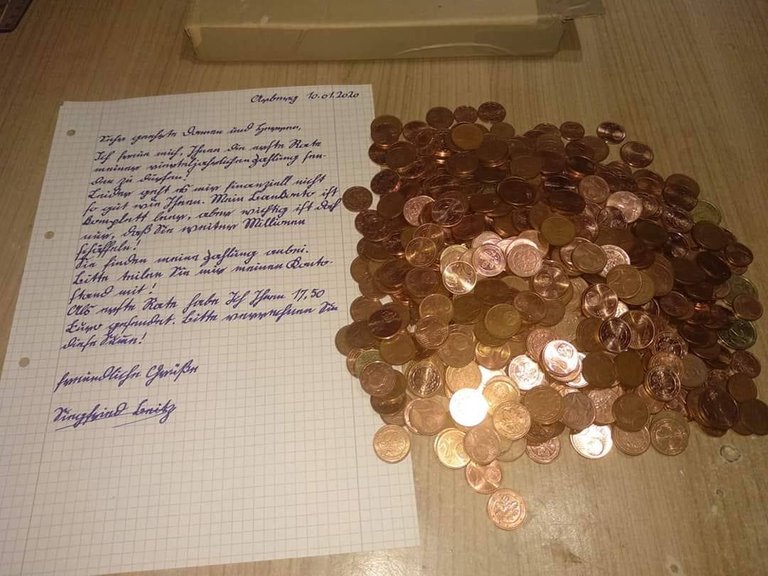 10.01.2020
Sehr geehrte Damen und Herren,
Ich freue mich, Ihnen die erste Rate
meiner vierteljährlichen Zahlung sen-
den zu dürfen!
Leider geht es mir finanziell nicht
so gut wie Ihnen. Mein Bankkonto ist
komplett leer, aber wichtig ist doch
nur, daß Sie weiter Millionen
scheffeln!
Sie finden meine Zahlung anbei.
Bitte teilen Sie mir meinen Konto-
stand mit!
Als erste Rate habe Ich Ihnen 17,50
Euro gesendet. Bitte verrechnen Sie
diese Summe!
freundliche Grüße
Siegfried